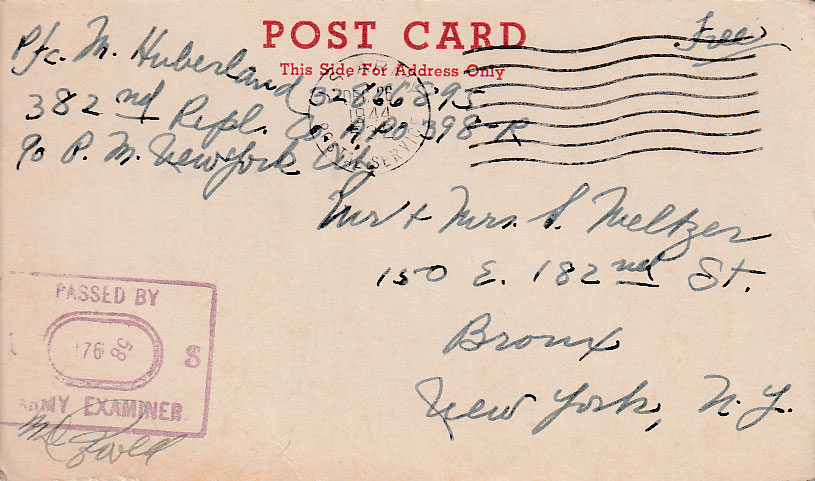 POST CARD
This Side For Address Only
Free
Pfc. M. Huberland 32866895
382nd Repl. Co. APO 398-R
c/o P. M. New York City
1944
POSTAL SERVICE
Mr + Mrs. S. Meltzer
150 E. 182nd St.
Bronx
New York, N.Y.
PASSED BY
S
ARMY EXAMINER